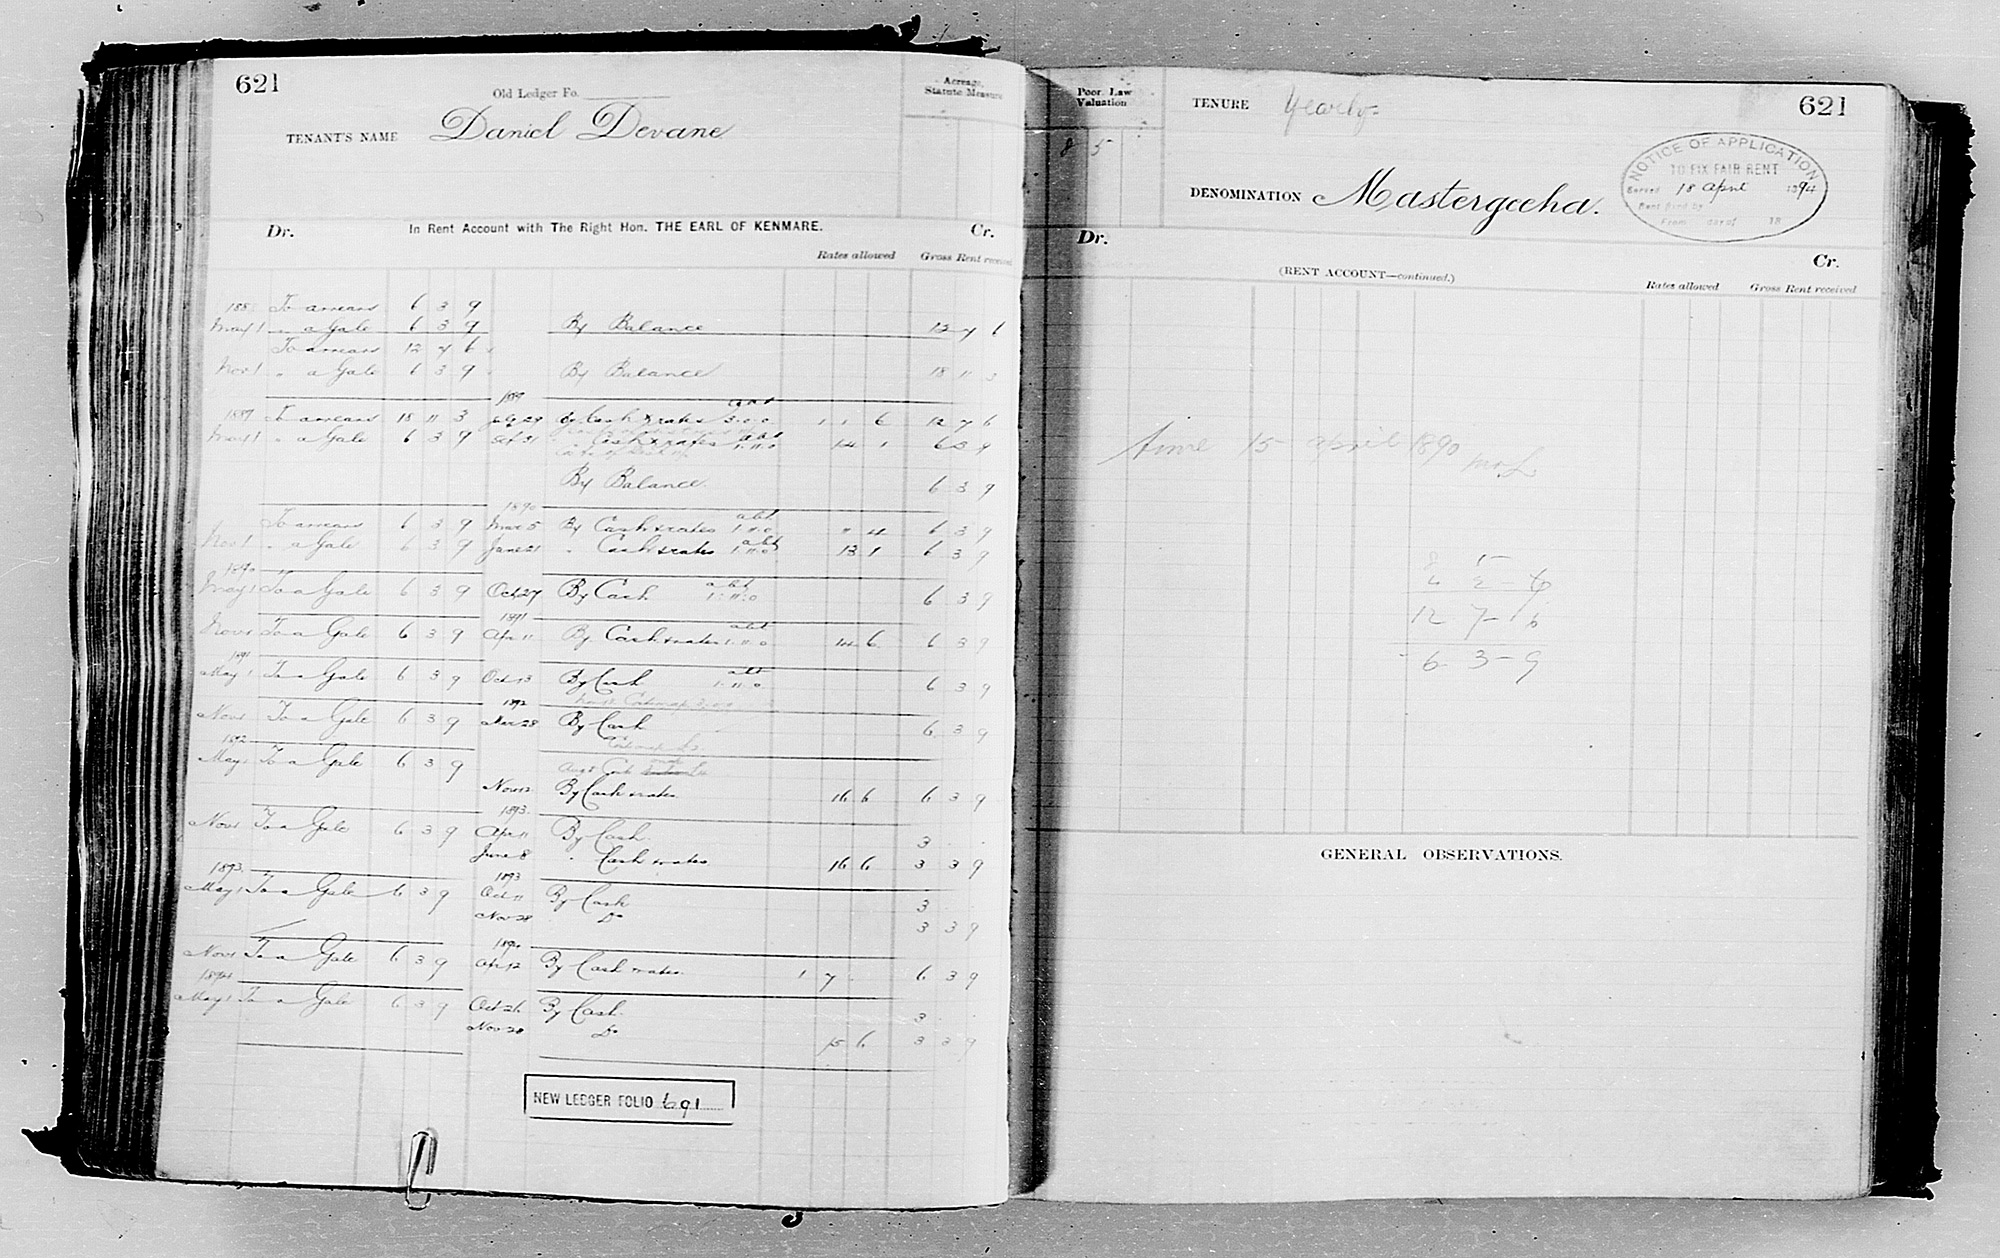 621
Old Ledger Fo.
TENANT'S NAME Daniel Devane
Acreage, Statute Measure
Dr. In Rent Account with The Right Hon. THE EARL OF KENMARE. Cr.
Rates allowed Gross Rent received
188 To arrears 6 3 9
May 1 " a Gale 6 3 9 By Balance 12 7 6
To arrears 12 7 6
Nov 1 " a Gale 6 3 9 By Balance 18 11 3
1889
1889 To arrears 18 11 3 By Cash & rates 3.0.0 1 1 6 12 7 6
May 1 " a Gale 6 3 9 Sept 21 " Cash & rates abt 1.11.0 14 1 6 3 9
By Balance 6 3 9
1890
To arrears 6 3 9 Mar 5 By Cash & rates abt 1.11.0 " 4 6 3 9
Nov 1 " a Gale 6 3 9 June 21 " Cash & rates abt 1.11.0 13 1 6 3 9
1890
May 1 To a Gale 6 3 9 Oct 27 By Cash abt 1:11:0 6 3 9
1891
Nov 1 To a Gale 6 3 9 Apr 11 By Cash & rates abt 1.11.0 14 6 6 3 9
1891
May 1 To a Gale 6 3 9 Oct 13 By Cash abt 1.11.0 6 3 9
1892
Nov 1 To a Gale 6 3 9 Mar 28 By Cash 6 3 9
1892
May 1 To a Gale 6 3 9
Nov 12 By Cash & rates 16 6 6 3 9
1893
Nov 1 To a Gale 6 3 9 Apr 11 By Cash 3 . .
June 8 " Cash & rates 16 6 3 3 9
1893 1893
May 1 To a Gale 6 3 9 Oct 11 By Cash 3
Nov 28 Do 3 3 9
1894
Nov 1 To a Gale 6 3 9 Apr 12 By Cash & rates 1 7 - 6 3 9
1894
May 1 To a Gale 6 3 9 Oct 26 By Cash 3 . .
Nov 28 Do 15 6 3 3 9
NEW LEDGER FOLIO 691
Poor Law Valuation
8 5
TENURE Yearly
621
DENOMINATION Mastergeeha.
NOTICE OF APPLICATION
TO FIX FAIR RENT
Served 18 April 1894
Rent fixed by
From day of 18
Dr. (RENT ACCOUNT—continued.) Cr.
Rates allowed Gross Rent received
time 15 april 1890
12 7 - 6
6 3 - 9
GENERAL OBSERVATIONS.